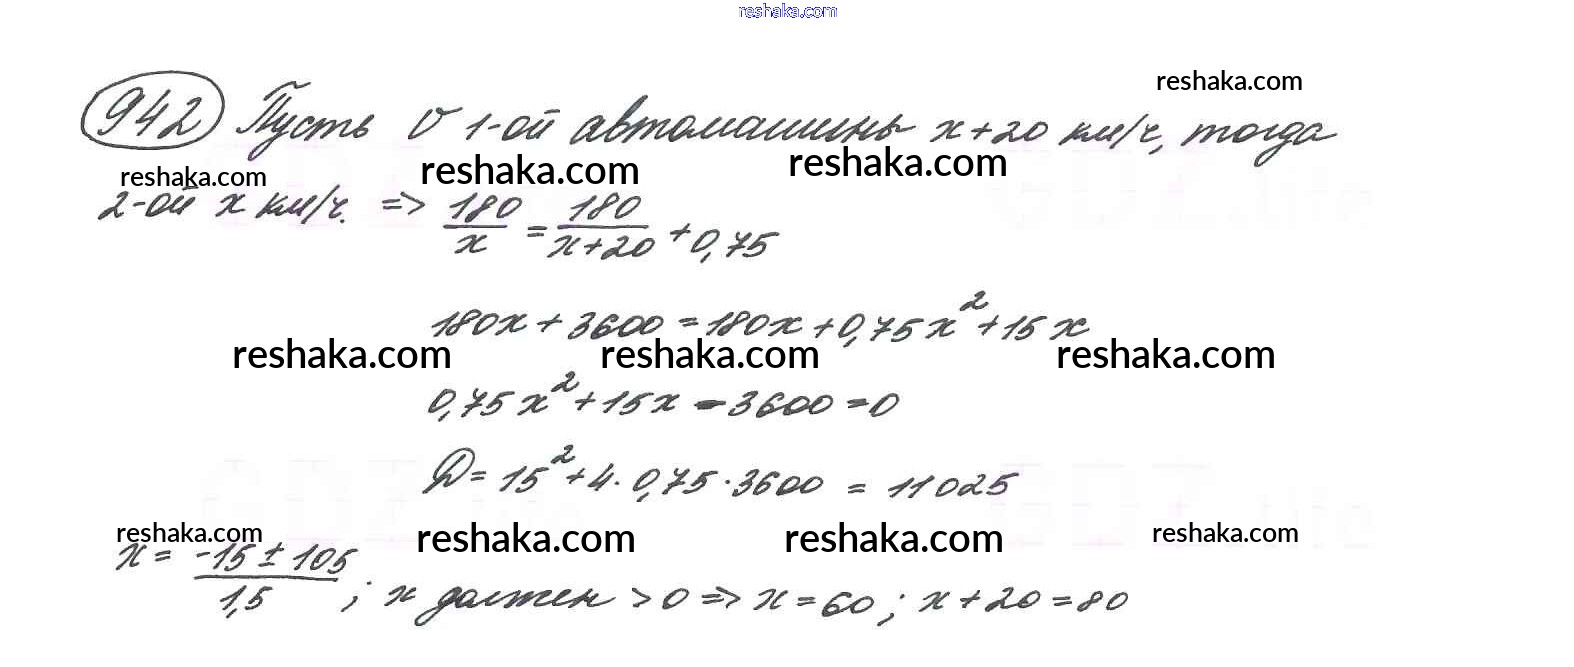 reshaka.com
reshaka.com
942 Пусть v 1-ой автомашины x+20 км/ч, тогда
reshaka.com reshaka.com reshaka.com
2-ой x км/ч. => 180/x = 180/(x+20) + 0,75
180x + 3600 = 180x + 0,75x² + 15x
reshaka.com reshaka.com reshaka.com
0,75x² + 15x - 3600 = 0
D = 15² + 4·0,75·3600 = 11025
reshaka.com reshaka.com reshaka.com reshaka.com
x = (-15 ± 105)/1,5 ; x должен > 0 => x = 60 ; x + 20 = 80